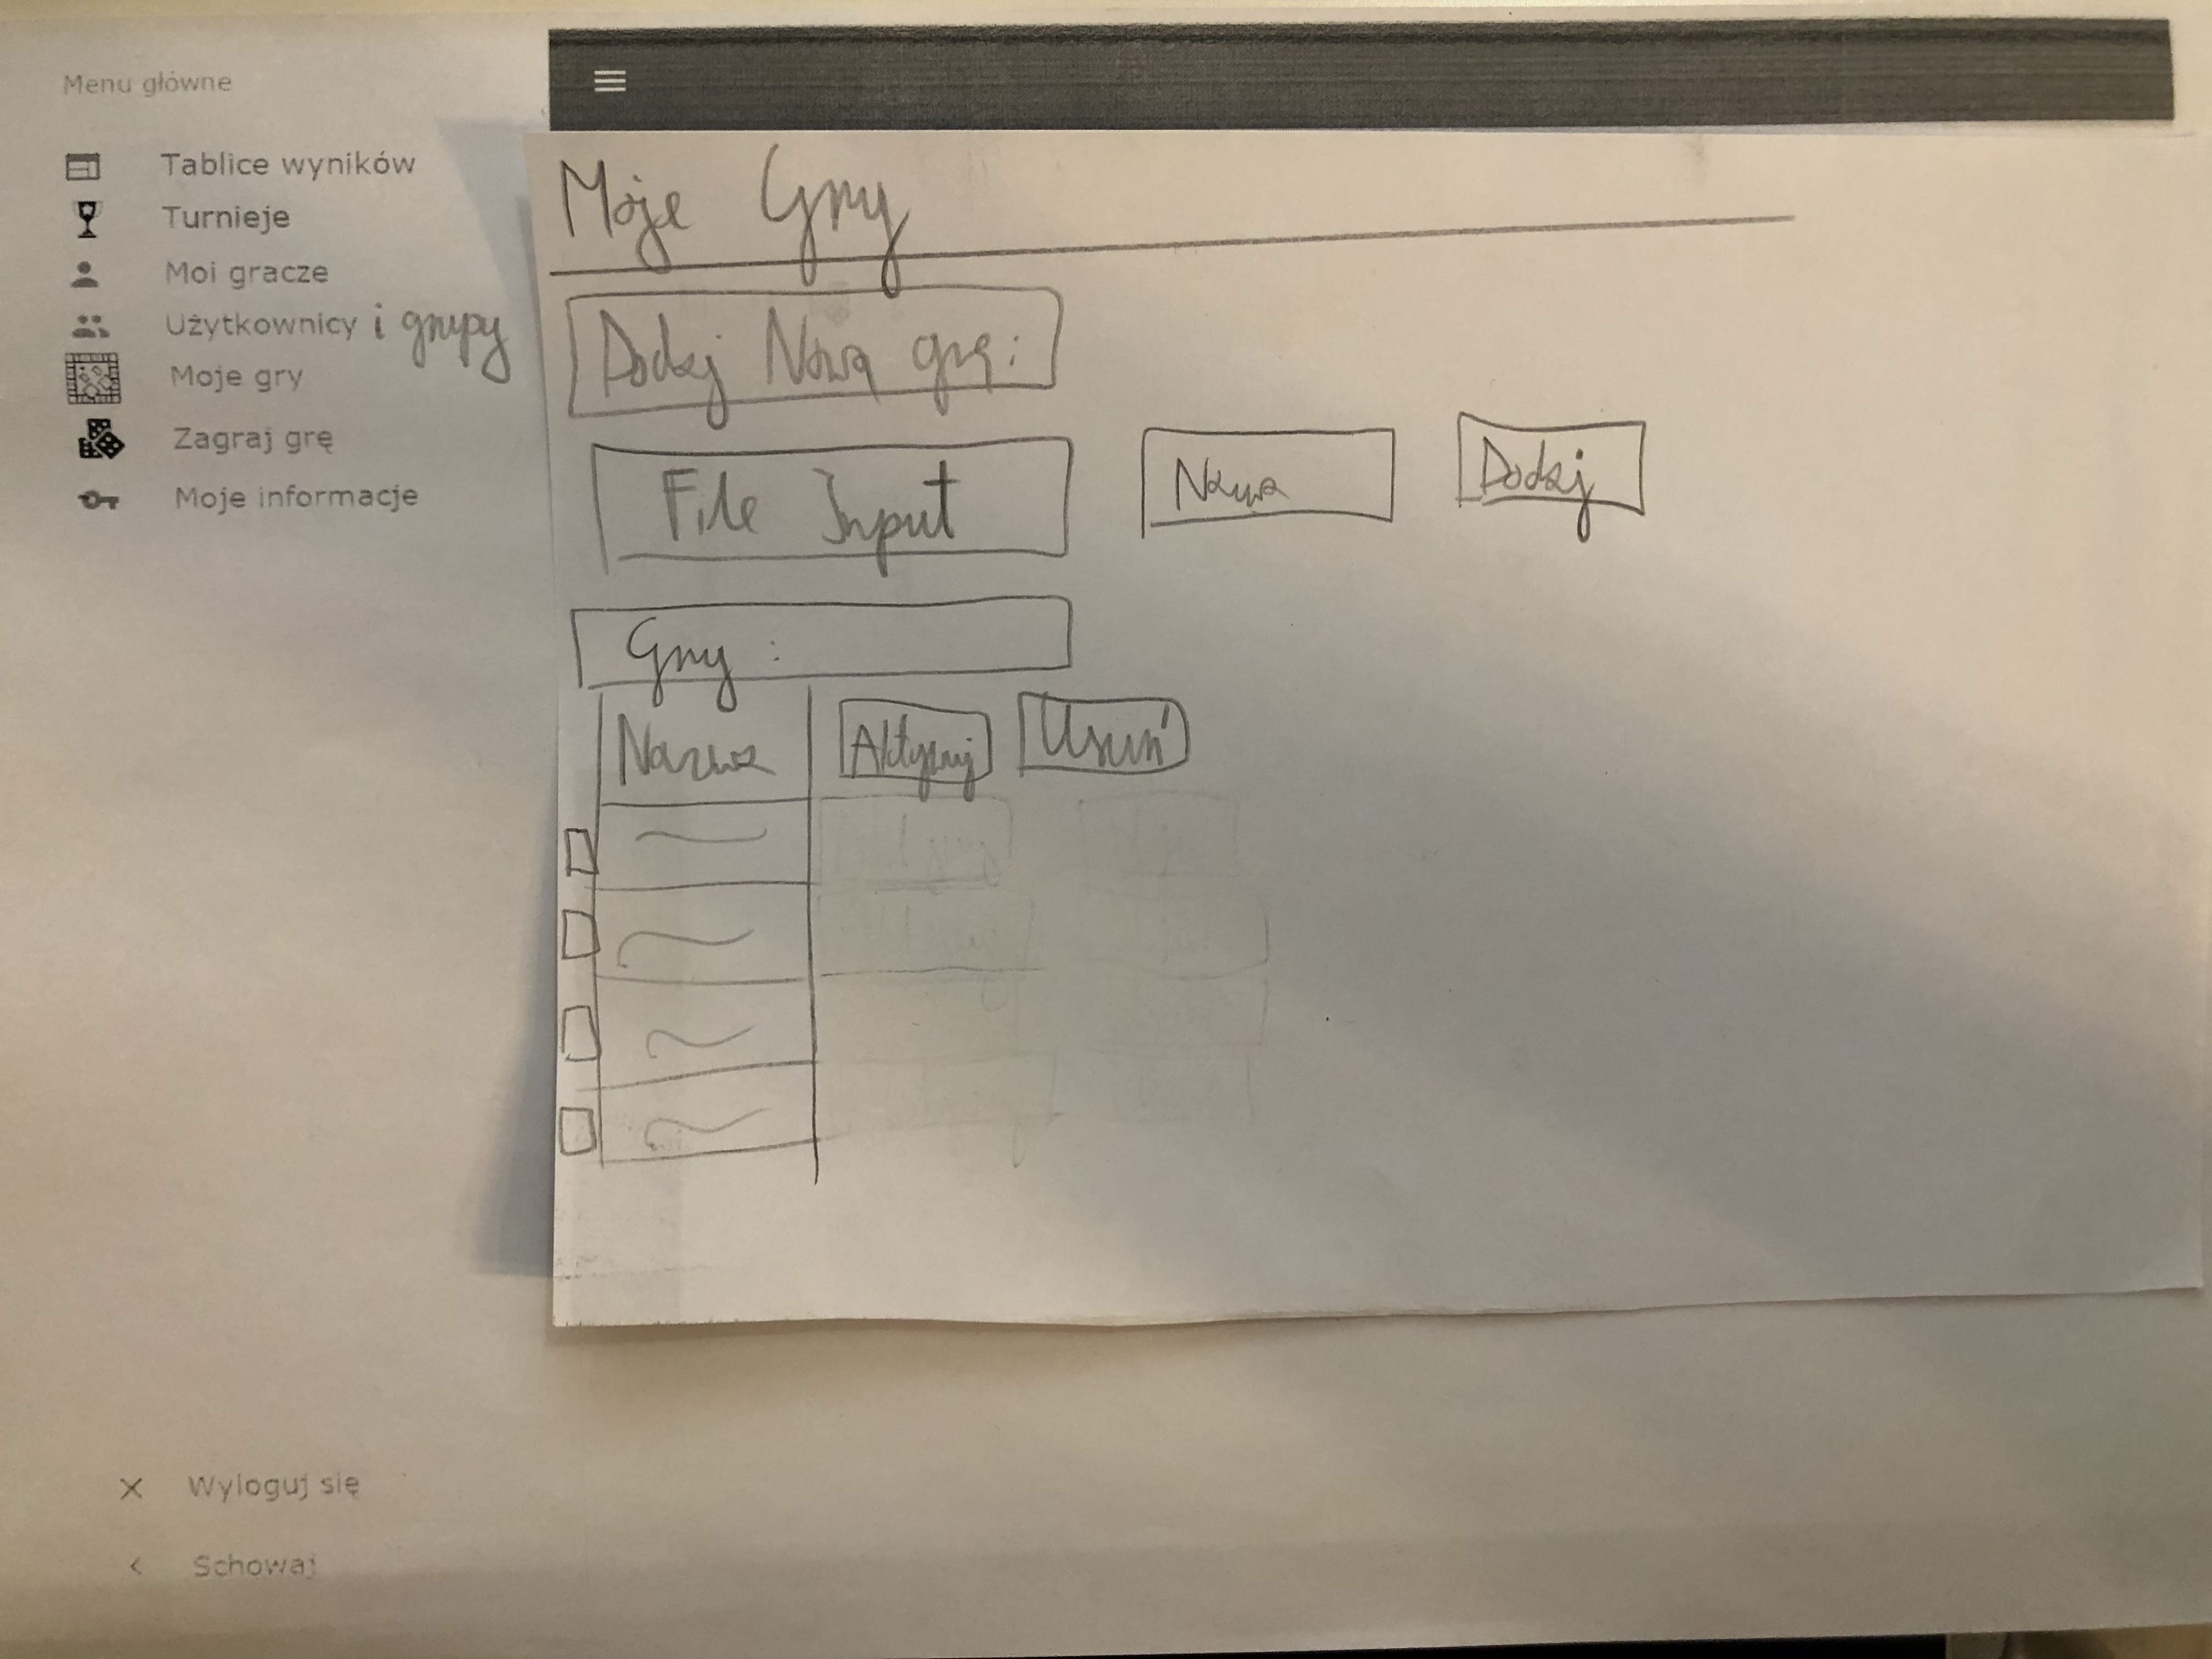 Menu główne
Tablice wyników
Turnieje
Moi gracze
Użytkownicy i grupy
Moje gry
Zagraj grę
Moje informacje
Wyloguj się
Schowaj
Moje Gry
Dodaj Nową grę:
File Input
Nazwa
Dodaj
Gry :
Nazwa
Aktywuj
Usuń